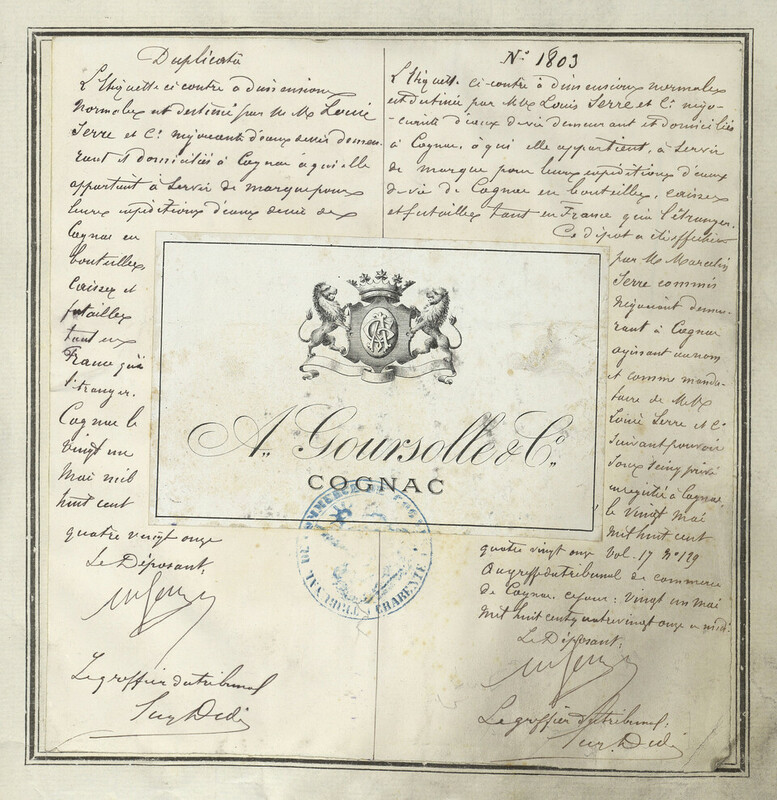 Duplicata
L'Etiquette ci contre à dimensions
normales est destinée par M M Louis
Serre et Cie négociants d'eaux de vie demeu-
rant & domiciliés à Cognac à qui elle
appartient à servir de marque pour
leurs expéditions d'eaux de vie de
Cognac en
bouteilles,
caisses et
futailles
tant en
France qu'à
l'étranger.
Cognac le
vingt un
Mai mil
huit cent
quatre vingt onze
Le Déposant:
Le greffier du tribunal
No 1803
L'Etiquette ci-contre à dimensions normales
est destinée par MM Louis Serre et Cie négo-
ciants d'eaux de vie demeurant et domiciliés
à Cognac, à qui elle appartient, à servir
de marque pour leurs expéditions d'eaux
de vie de Cognac en bouteilles, caisses
et futailles tant en France qu'à l'étranger.
Ce dépôt a été effectué
par M Marcelin
Serre commis
négociant demeu-
rant à Cognac
agissant au nom
et comme manda-
taire de MM
Louis Serre et Cie
suivant pouvoir
sous seing privé
enregistré à Cognac
le vingt Mai
Mil huit cent
quatre vingt onze Vol. 17 No 129
Au greffe du tribunal de commerce
de Cognac, ce jour: vingt un Mai
Mil huit cent quatre vingt onze à midi.
Le Déposant:
Le greffier du tribunal:
A. Goursolle & Co.
COGNAC
TRIBUNAL DE COMMERCE DE COGNAC
CHARENTE